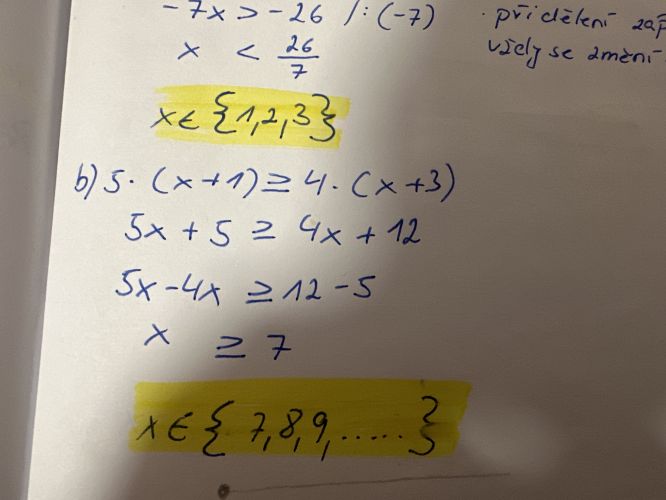 -7x > -26 /: (-7)
· při dělení
x < 26/7
vždy se změní
x ∈ {1, 2, 3}
b) 5 · (x + 1) ≥ 4 · (x + 3)
5x + 5 ≥ 4x + 12
5x - 4x ≥ 12 - 5
x ≥ 7
x ∈ {7, 8, 9, ......}